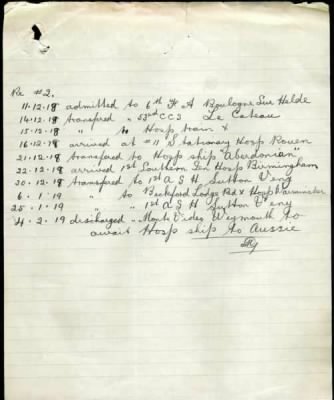 Re #2.
11.12.18 admitted to 6th F. A Boulogne Sur Helde
14.12.18 transfered " 53rd CCS Le Cateau
15.12.18 " to Hosp train x
16.12.18 arrived at #11 Stationary Hosp Rouen
21.12.18 transfered to Hosp ship "Aberdonian"
22.12.18 arrived 1st Southern Gen Hosp Birmingham
30.12.18 transfered to 1st A S H Sutton Veny
6.1.19 " to Beckford Lodge Rd x Hosp Warminster
25.1.19 " " 1st A S H Sutton Veny
4.2.19 discharged " Monte Video Weymouth to
await Hosp ship to Aussie